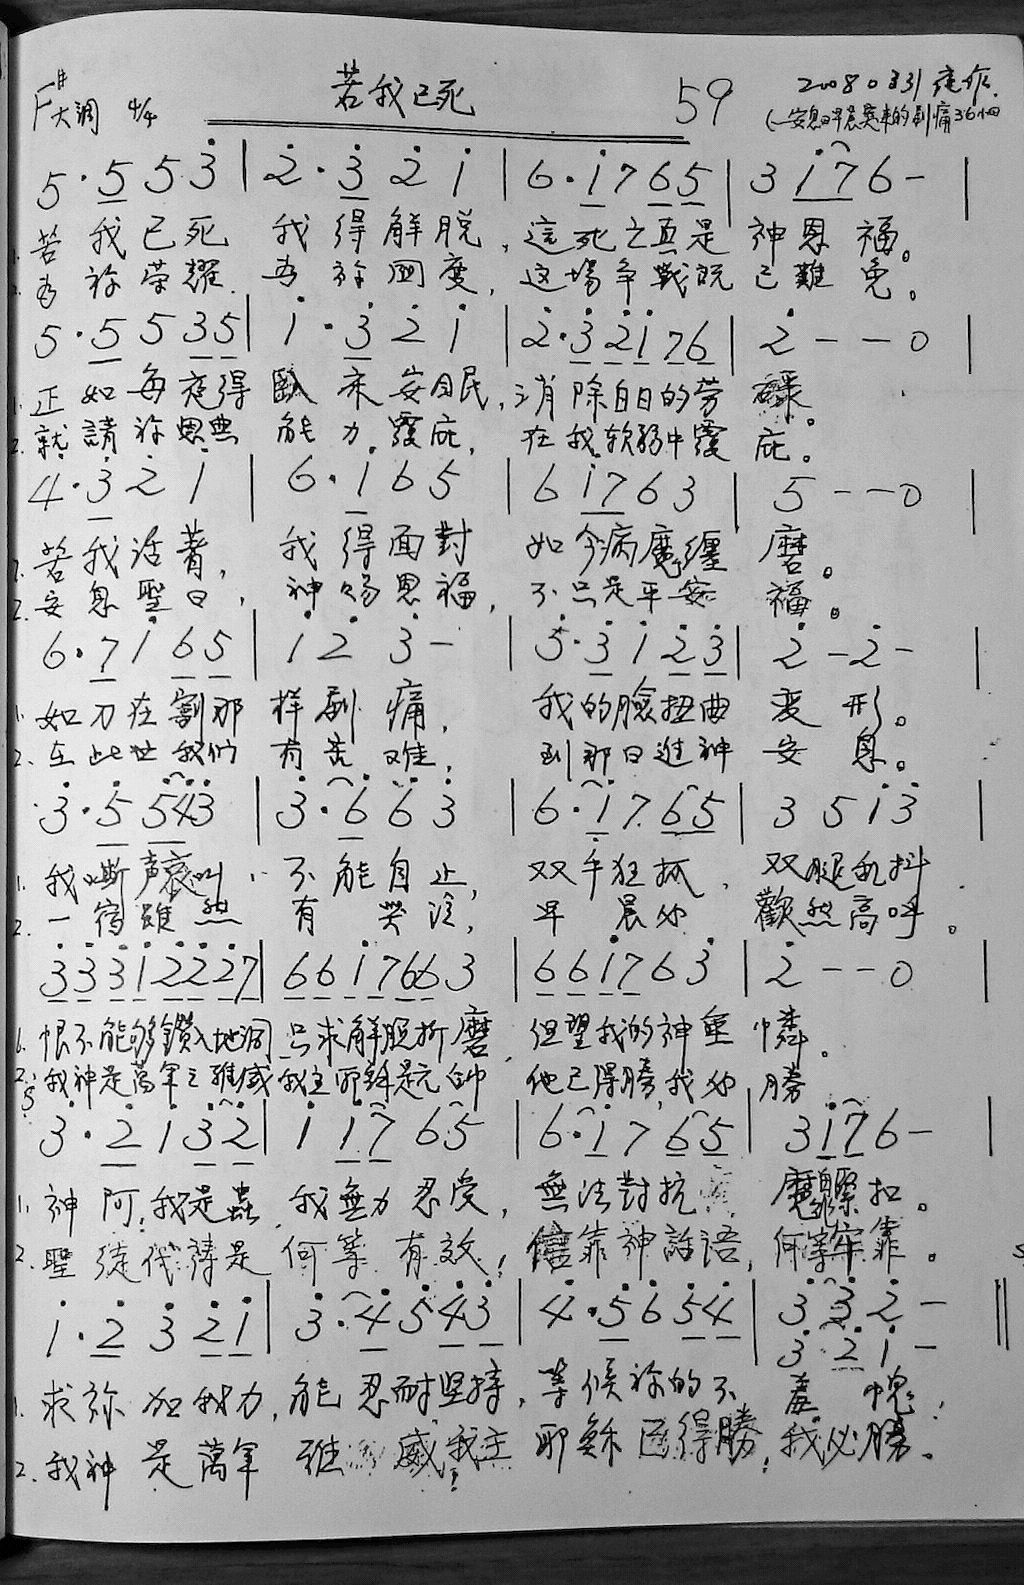 F#大調 4/4 若我已死 59 20080331
5·5 5 3 | 2·3 2 1 | 6·1 7 6 5 | 3 1 7 6 - |
1. 若我已死 我得解脱，這死之真是神恩福。
2. 為祢荣耀 為祢國度，这場争戰既已難免。
5·5 5 3 5 | 1·3 2 1 | 2·3 2 1 7 6 | 2 - - 0 |
1. 正如每夜得臥床安眠，消除白日的劳累。
2. 就請祢恩典能力覆庇，在我软弱中覆庇。
4·3 2 1 | 6·1 6 5 | 6 1 7 6 3 | 5 - - 0 |
1. 若我活着，我得面對如今病魔纏磨。
2. 安息聖日，神赐恩福，不只是平安福。
6·7 1 6 5 | 1 2 3 - | 5·3 1 2 3 | 2 - 2 - |
1. 如刀在割那样剧痛，我的臉扭曲变形。
2. 在此世我们有苦难，到那日進神安息。
3·5 5 4 3 | 3·6 6 3 | 6·1 7 6 5 | 3 5 1 3 |
1. 我嘶声哀叫，不能自止，双手狂抓，双腿乱抖
2. 一宿雖然有哭泣，早晨必歡然高呼。
3 3 3 1 2 2 2 7 | 6 6 1 7 6 6 3 | 6 6 1 7 6 3 | 2 - - 0 |
1. 恨不能够鑽入地洞 只求解脱折磨 但望我的神垂憐。
2. 我神是萬軍之 我主耶穌是元帥 他已得勝，我必勝
3·2 1 3 2 | 1 1 7 6 5 | 6·1 7 6 5 | 3 1 7 6 - |
1. 神阿，我是蟲，我無力忍受，無法對抗魔鬼緊扣。
2. 聖徒代禱是何等有效，信靠神話语，何等牢靠。
1·2 3 2 1 | 3·4 5 4 3 | 4·5 6 5 4 | 3 3 2 - ‖
3·2 1 -
1. 求祢加我力，能忍耐坚持，等候祢的不羞愧，
2. 我神是萬軍 威 我主耶穌 得勝，我必勝。